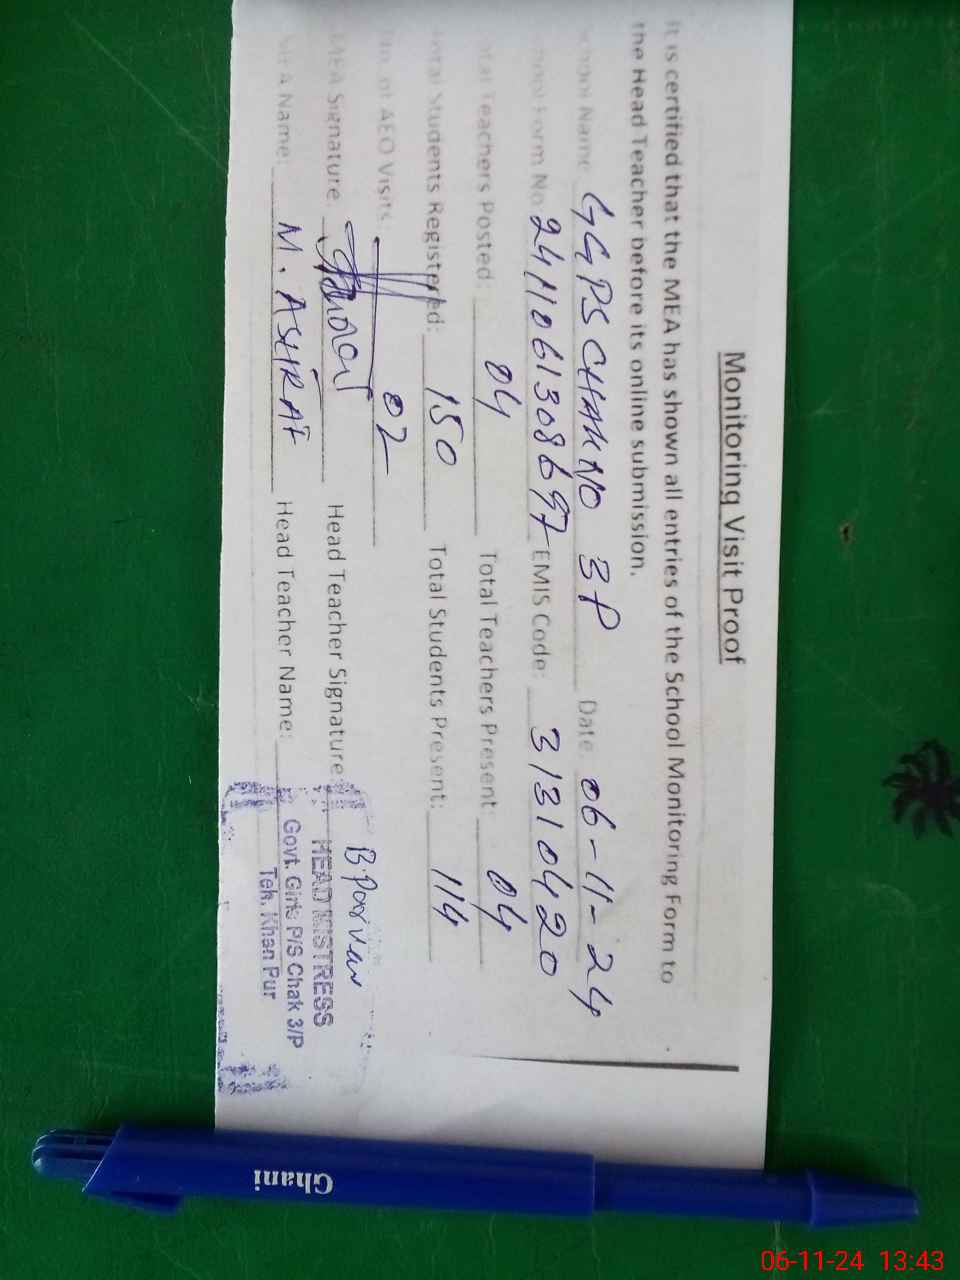 Monitoring Visit Proof
It is certified that the MEA has shown all entries of the School Monitoring Form to
the Head Teacher before its online submission.
School Name: GGPS CHAK NO 3P Date: 06-11-24
School Form No: EMIS Code: 31310420
Total Teachers Posted: 04 Total Teachers Present: 04
Total Students Registered: 150 Total Students Present: 114
No. of AEO Visits: 02
MEA Signature: Head Teacher Signature:
MEA Name: M. ASHRAF Head Teacher Name:
HEAD MISTRESS
Govt. Girls P/S Chak 3/P
Teh. Khan Pur
Ghani
06-11-24 13:43